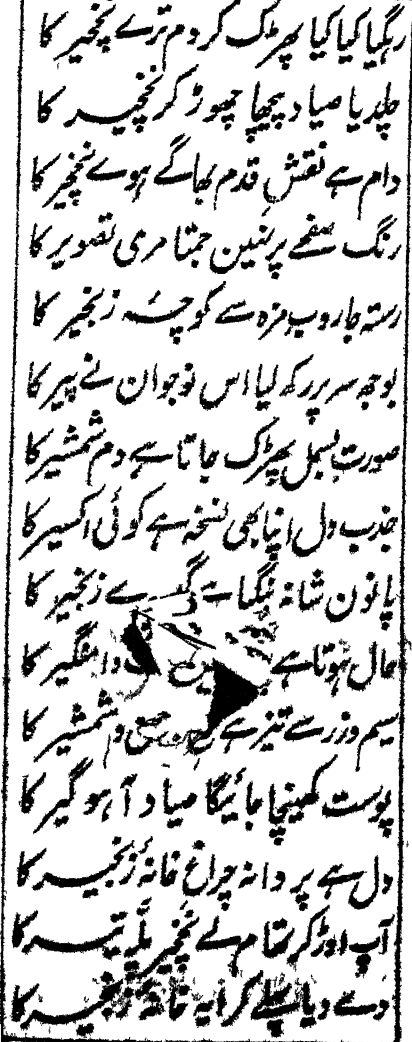 رہگیا کیا کیا پھڑک کر دم ترے نخچیر کا
چلدیا صیاد پیچھا چھوڑ کر نخچیر کا
دام ہے نقش قدم بھاگے ہوے نخچیر کا
رنگ صفحے پر نہین جمتا مری تصویر کا
رستہ جاروب مژہ سے کوچۂ زنجیر کا
بوجھ سر پر رکھ لیا اس نوجوان نے پیر کا
صورت بسمل پھڑک جاتا ہے دم شمشیر کا
جذب دل اپنا بھی نسخہ ہے کوئی اکسیر کا
پانون شانہ زنجیر کا
حال ہوتا ہے دامنگیر کا
سیم و زر سے تیز ہے دم شمشیر کا
پوست کھینچا جائیگا صیاد آہو گیر کا
دل ہے پروانہ چراغ خانۂ زنجیر کا
آپ اوڑ کر تھام لے نخچیر پلہ تیر کا
دے دیا پہلے کرایہ خانۂ زنجیر کا